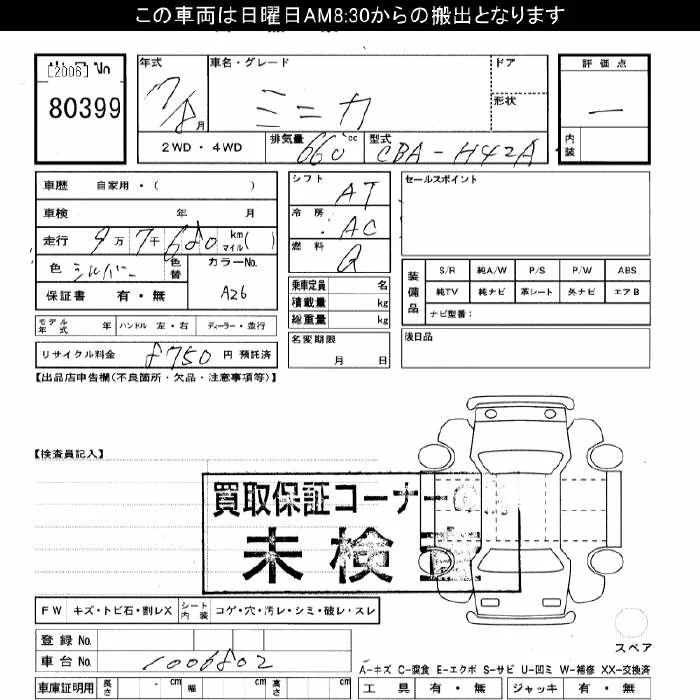 この車両は日曜日AM8:30からの搬出となります
[2006] No
80399
年式
17/8 月
車名・グレード
ミニカ
ドア
形状
評価点
—
内装
2WD・4WD
排気量 660 cc
型式 CBA-H42A
車歴 自家用・( )
車検 年 月
走行 9万7千680 km マイル( )
色 シルバー 色替
カラーNo. A26
保証書 有・無
モデル年式 年 ハンドル 左・右 ディーラー・並行
リサイクル料金 8750 円 預託済
シフト AT
冷房 AC
燃料 G
乗車定員 名
積載量 kg
総重量 kg
名変期限
月 日
セールスポイント
装備品
S/R 純A/W P/S P/W ABS
純TV 純ナビ 革シート 外ナビ エアB
ナビ型番:
後日品
【出品店申告欄(不良箇所・欠品・注意事項等)】
【検査員記入】
買取保証コーナー
未検
FW キズ・トビ石・割レX シート内装 コゲ・穴・汚レ・シミ・破レ・スレ
登録No.
車台No. 1006802
車庫証明用 長さ cm 幅 cm 高さ cm
スペア
A-キズ C-腐食 E-エクボ S-サビ U-凹ミ W-補修 XX-交換済
工具 有・無 ジャッキ 有・無